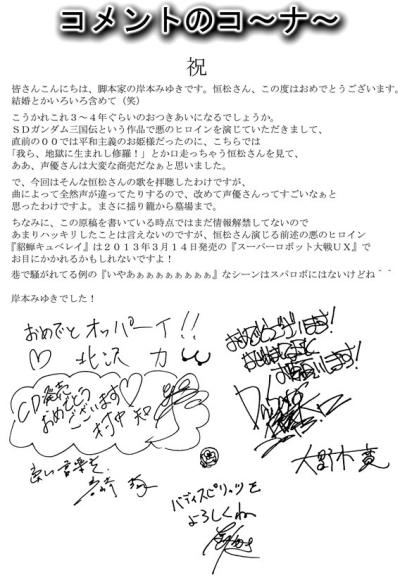 コメントのコ～ナ～
祝
皆さんこんにちは、脚本家の岸本みゆきです。恒松さん、この度はおめでとうございます。
結婚とかいろいろ含めて（笑）
こうかれこれ３～４年ぐらいのおつきあいになるでしょうか。
ＳＤガンダム三国伝という作品で悪のヒロインを演じていただきまして、
直前の００では平和主義のお姫様だったのに、こちらでは
「我ら、地獄に生まれし修羅！」とか口走っちゃう恒松さんを見て、
ああ、声優さんは大変な商売だなぁと思いました。
で、今回はそんな恒松さんの歌を拝聴したわけですが、
曲によって全然声が違ってたりするので、改めて声優さんってすごいなぁと
思ったわけですよ。まさに揺り籠から墓場まで。
ちなみに、この原稿を書いている時点ではまだ情報解禁してないので
あまりハッキリしたことは言えないのですが、恒松さん演じる前述の悪のヒロイン
『貂蝉キュベレイ』は２０１３年３月１４日発売の『スーパーロボット大戦ＵＸ』で
お目にかかれるかもしれないですよ！
巷で騒がれてる例の『いやあぁぁぁぁぁぁぁぁ』なシーンはスパロボにはないけどね｀｀
岸本みゆきでした！
おめでとオッパーイ!!
♡ 北沢 力
CD発売♡
おめでとう
ございます
村中 知
おめでとうございます!
大野木寛
良い音楽を
バディスピリッツを
よろしくね